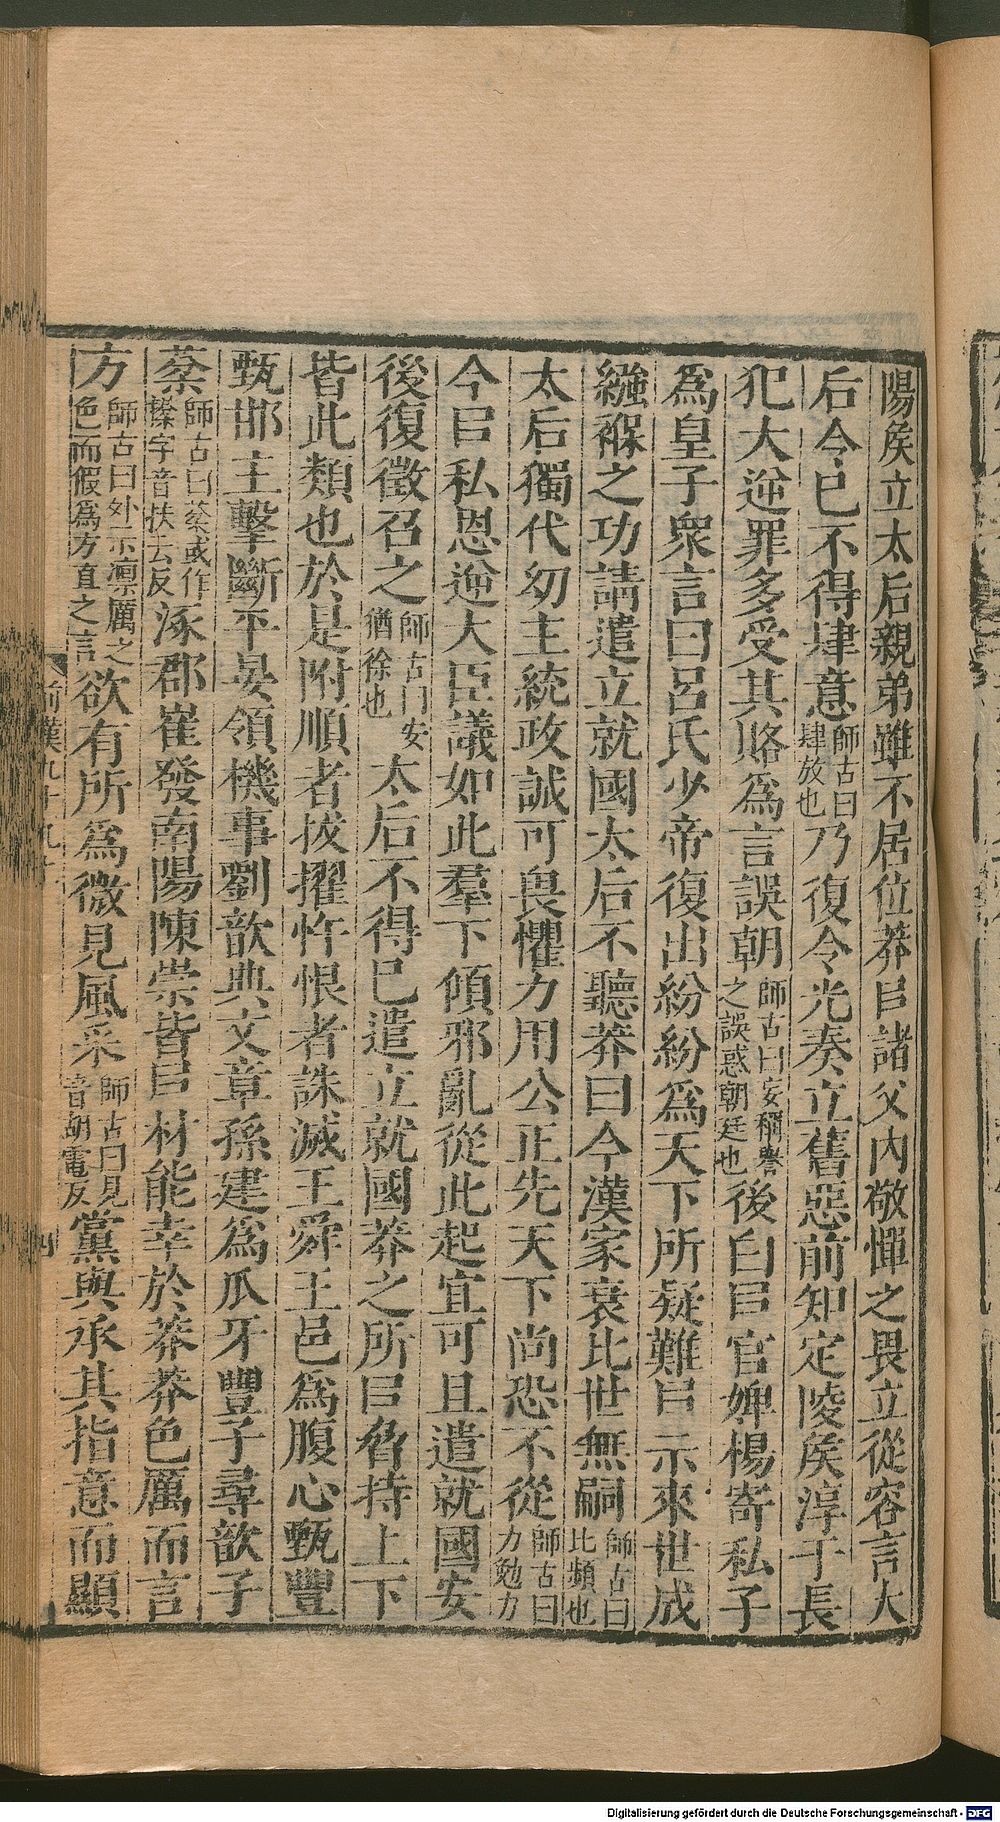 陽矦立太后親弟雖不居位莽㠯諸父內敬憚之畏立從容言太
后令已不得肆意師古曰肆放也乃復令光奏立舊惡前知定陵矦淳于長
犯大逆罪多受其賂爲言誤朝師古曰安稱譽之誤惑朝廷也後白㠯官婢楊寄私子
爲皇子衆言曰呂氏少帝復出紛紛爲天下所疑難㠯示來世成
繈褓之功請遣立就國太后不聽莽曰今漢家衰比世無嗣師古曰比頻也
太后獨代幼主統政誠可畏懼力用公正先天下尚恐不從師古曰力勉力
今㠯私恩逆大臣議如此羣下傾邪亂從此起宜可且遣就國安
後復徵召之師古門安猶徐也太后不得已遣立就國莽之所㠯脅持上下
皆此類也於是附順者拔擢忤恨者誅滅王舜王邑爲腹心甄豐
甄邯主擊斷平晏領機事劉歆典文章孫建爲爪牙豐子尋歆子
棻師古曰棻或作㯥字音扶云反涿郡崔發南陽陳崇皆㠯材能幸於莽莽色厲而言
方師古曰外示凛厲之色而假爲方直之言欲有所爲微見風采師古曰見音胡電反黨與承其指意而顯
Digitalisierung gefördert durch die Deutsche Forschungsgemeinschaft - DFG